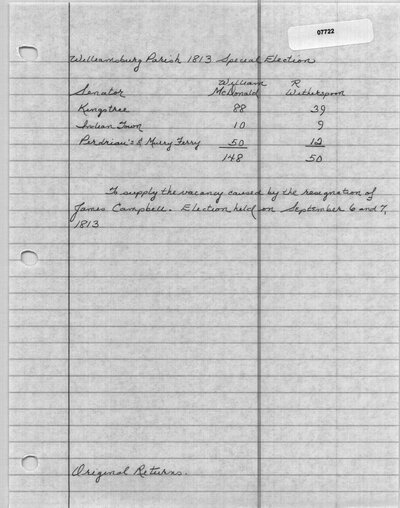 07722
Williamsburg Parish 1813 Special Election
William R
Senator McDonald Witherspoon
Kingstree 88 39
Indian Town 10 9
Perdriau's & Murry Ferry 50 12
148 50
To supply the vacancy caused by the resignation of
James Campbell. Election held on September 6 and 7,
1813
Original Returns.